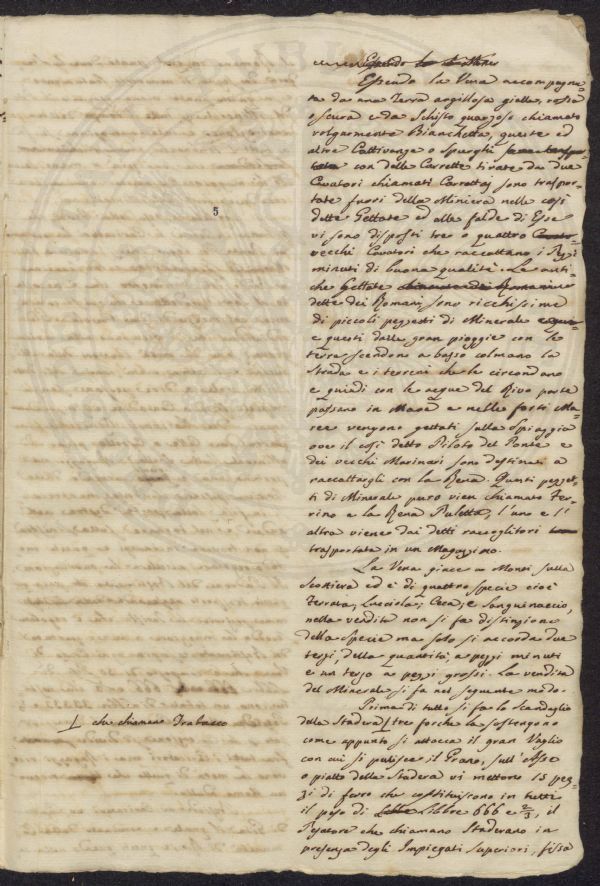 Essendo
Essendo la Vena accompagna=
ta da una Terra argillosa gialla, rossa
oscura e da Schisto quarzoso chiamato
volgarmente Bianchetta, queste ed
altre Cattivanze o Spurghi
con delle Carrette tirate da due
Cavatori chiamati Carrettaj sono traspor-
tate fuori della Miniera nelle così
dette Gettate ed alle falde di Esse
vi sono disposti tre o quattro
vecchi Cavatori che raccattano i Pezzi
minuti di buona qualità. Le anti-
che Gettate
dette dei Romani, sono ricchissime
di piccoli pezzetti di Minerale
e questi dalle gran pioggie con le
terra scendono a basso colmano la
Strada e i terreni che le circondano
e quindi con le acque del Rivo parte
passano in Mare e nelle forti Ma-
ree vengono gettati sulla Spiaggia
ove il così detto Piloto del Ponte e
dei vecchi Marinari sono destinati a
raccattargli con la Rena. Questi pezzet-
ti di Minerale puro vien chiamato Fer-
rino e la Rena Puletta, l'uno e l'
altra viene dai detti raccoglitori
trasportata in un Magazzino.
La Vena giace a Monti sulla
Scottiera ed è di quattro specie cioè
Ferrata, Lucciola, Ceca, e Sanguinaccio,
nella vendita non si fa distinzione
della Specie ma solo si accorda due
terzi, della quantità, a pezzi minuti
e un terzo a pezzi grossi. La vendita
del Minerale si fa nel seguente modo.
Prima di tutto si fa lo Scandaglio
dalla Stadera ⊥ tre forche la sostengono
come appunto si attacca il gran Vaglio
con cui si pulisce il Grano, sull'Asse
o piatto della Stadera vi mettono 15 pez-
zi di ferro che costituiscono in tutti
il peso di Libbre 666 e 2/3, il
Pesatore che chiamano Staderano in
presenza degli Impiegati Superiori, fissa
5
⊥ che chiamano Trabacco